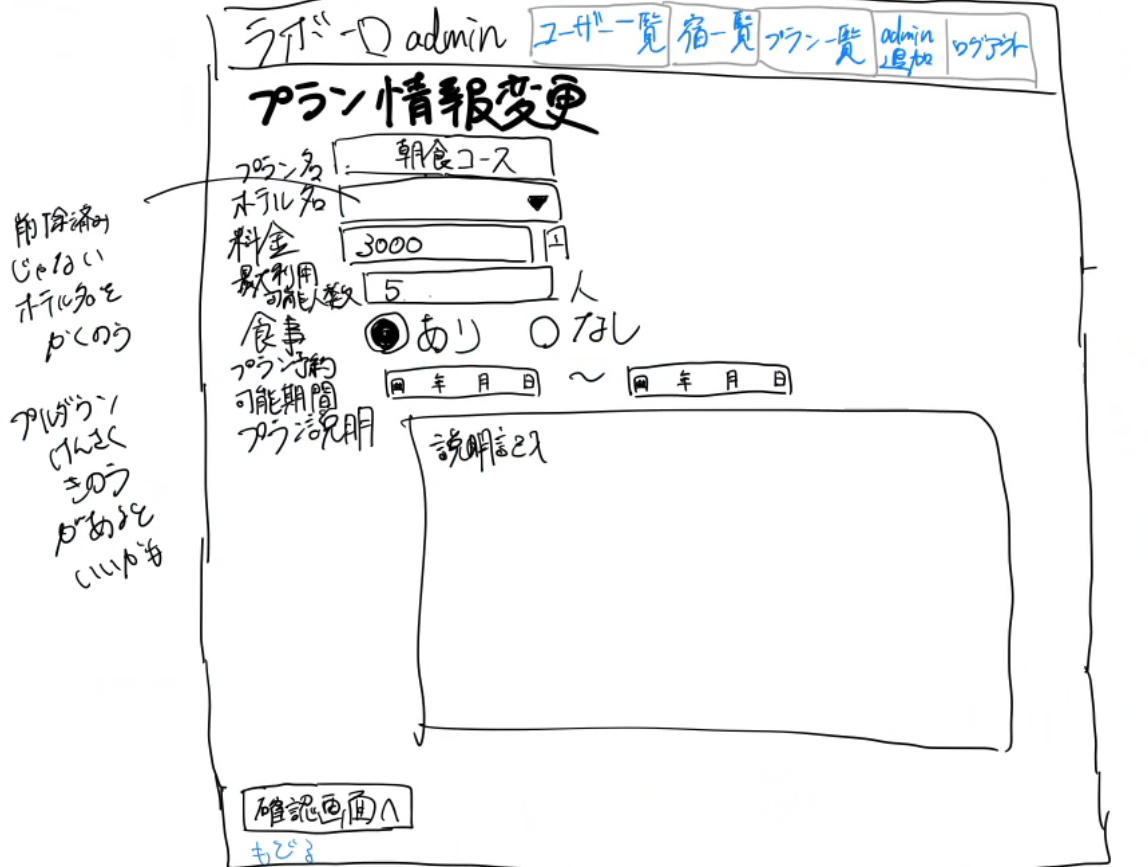 admin
ユーザー一覧
宿一覧
プラン一覧
admin
追加
ログアウト
プラン情報変更
プラン名
朝食コース
ホテル名
料金
3000
最大利用
可能人数
5
人
食事
あり
なし
プラン予約
可能期間
年 月 日
~
年 月 日
プラン説明
説明記入
削除済み
じゃない
ホテル名を
かくのう
プルダウン
けんさく
きのう
があると
いいかも
確認画面へ
もどる